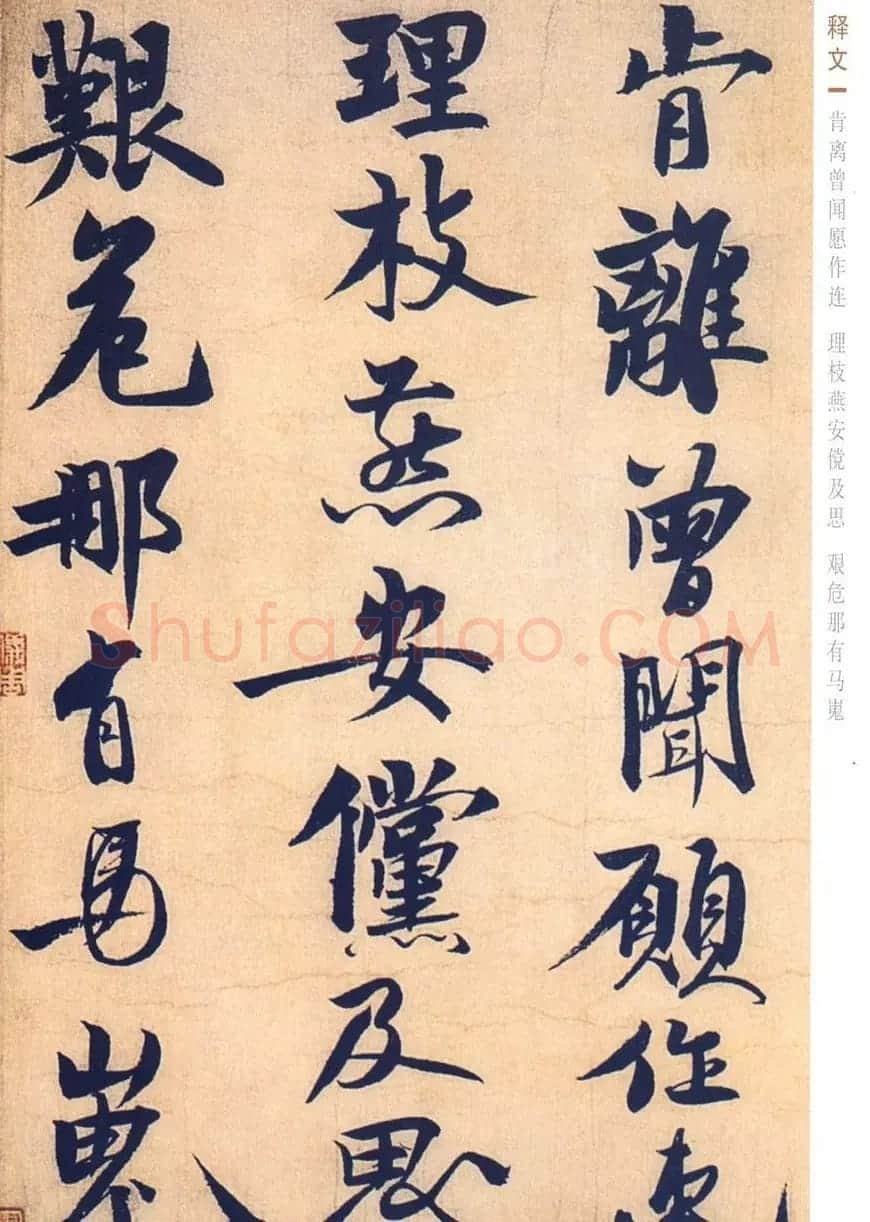 肯離曾聞願作連
理枝燕安儻及思
艱危那有馬嵬
释文
肯离曾闻愿作连 理枝燕安傥及思 艰危那有马嵬
Shufaziliao.COM